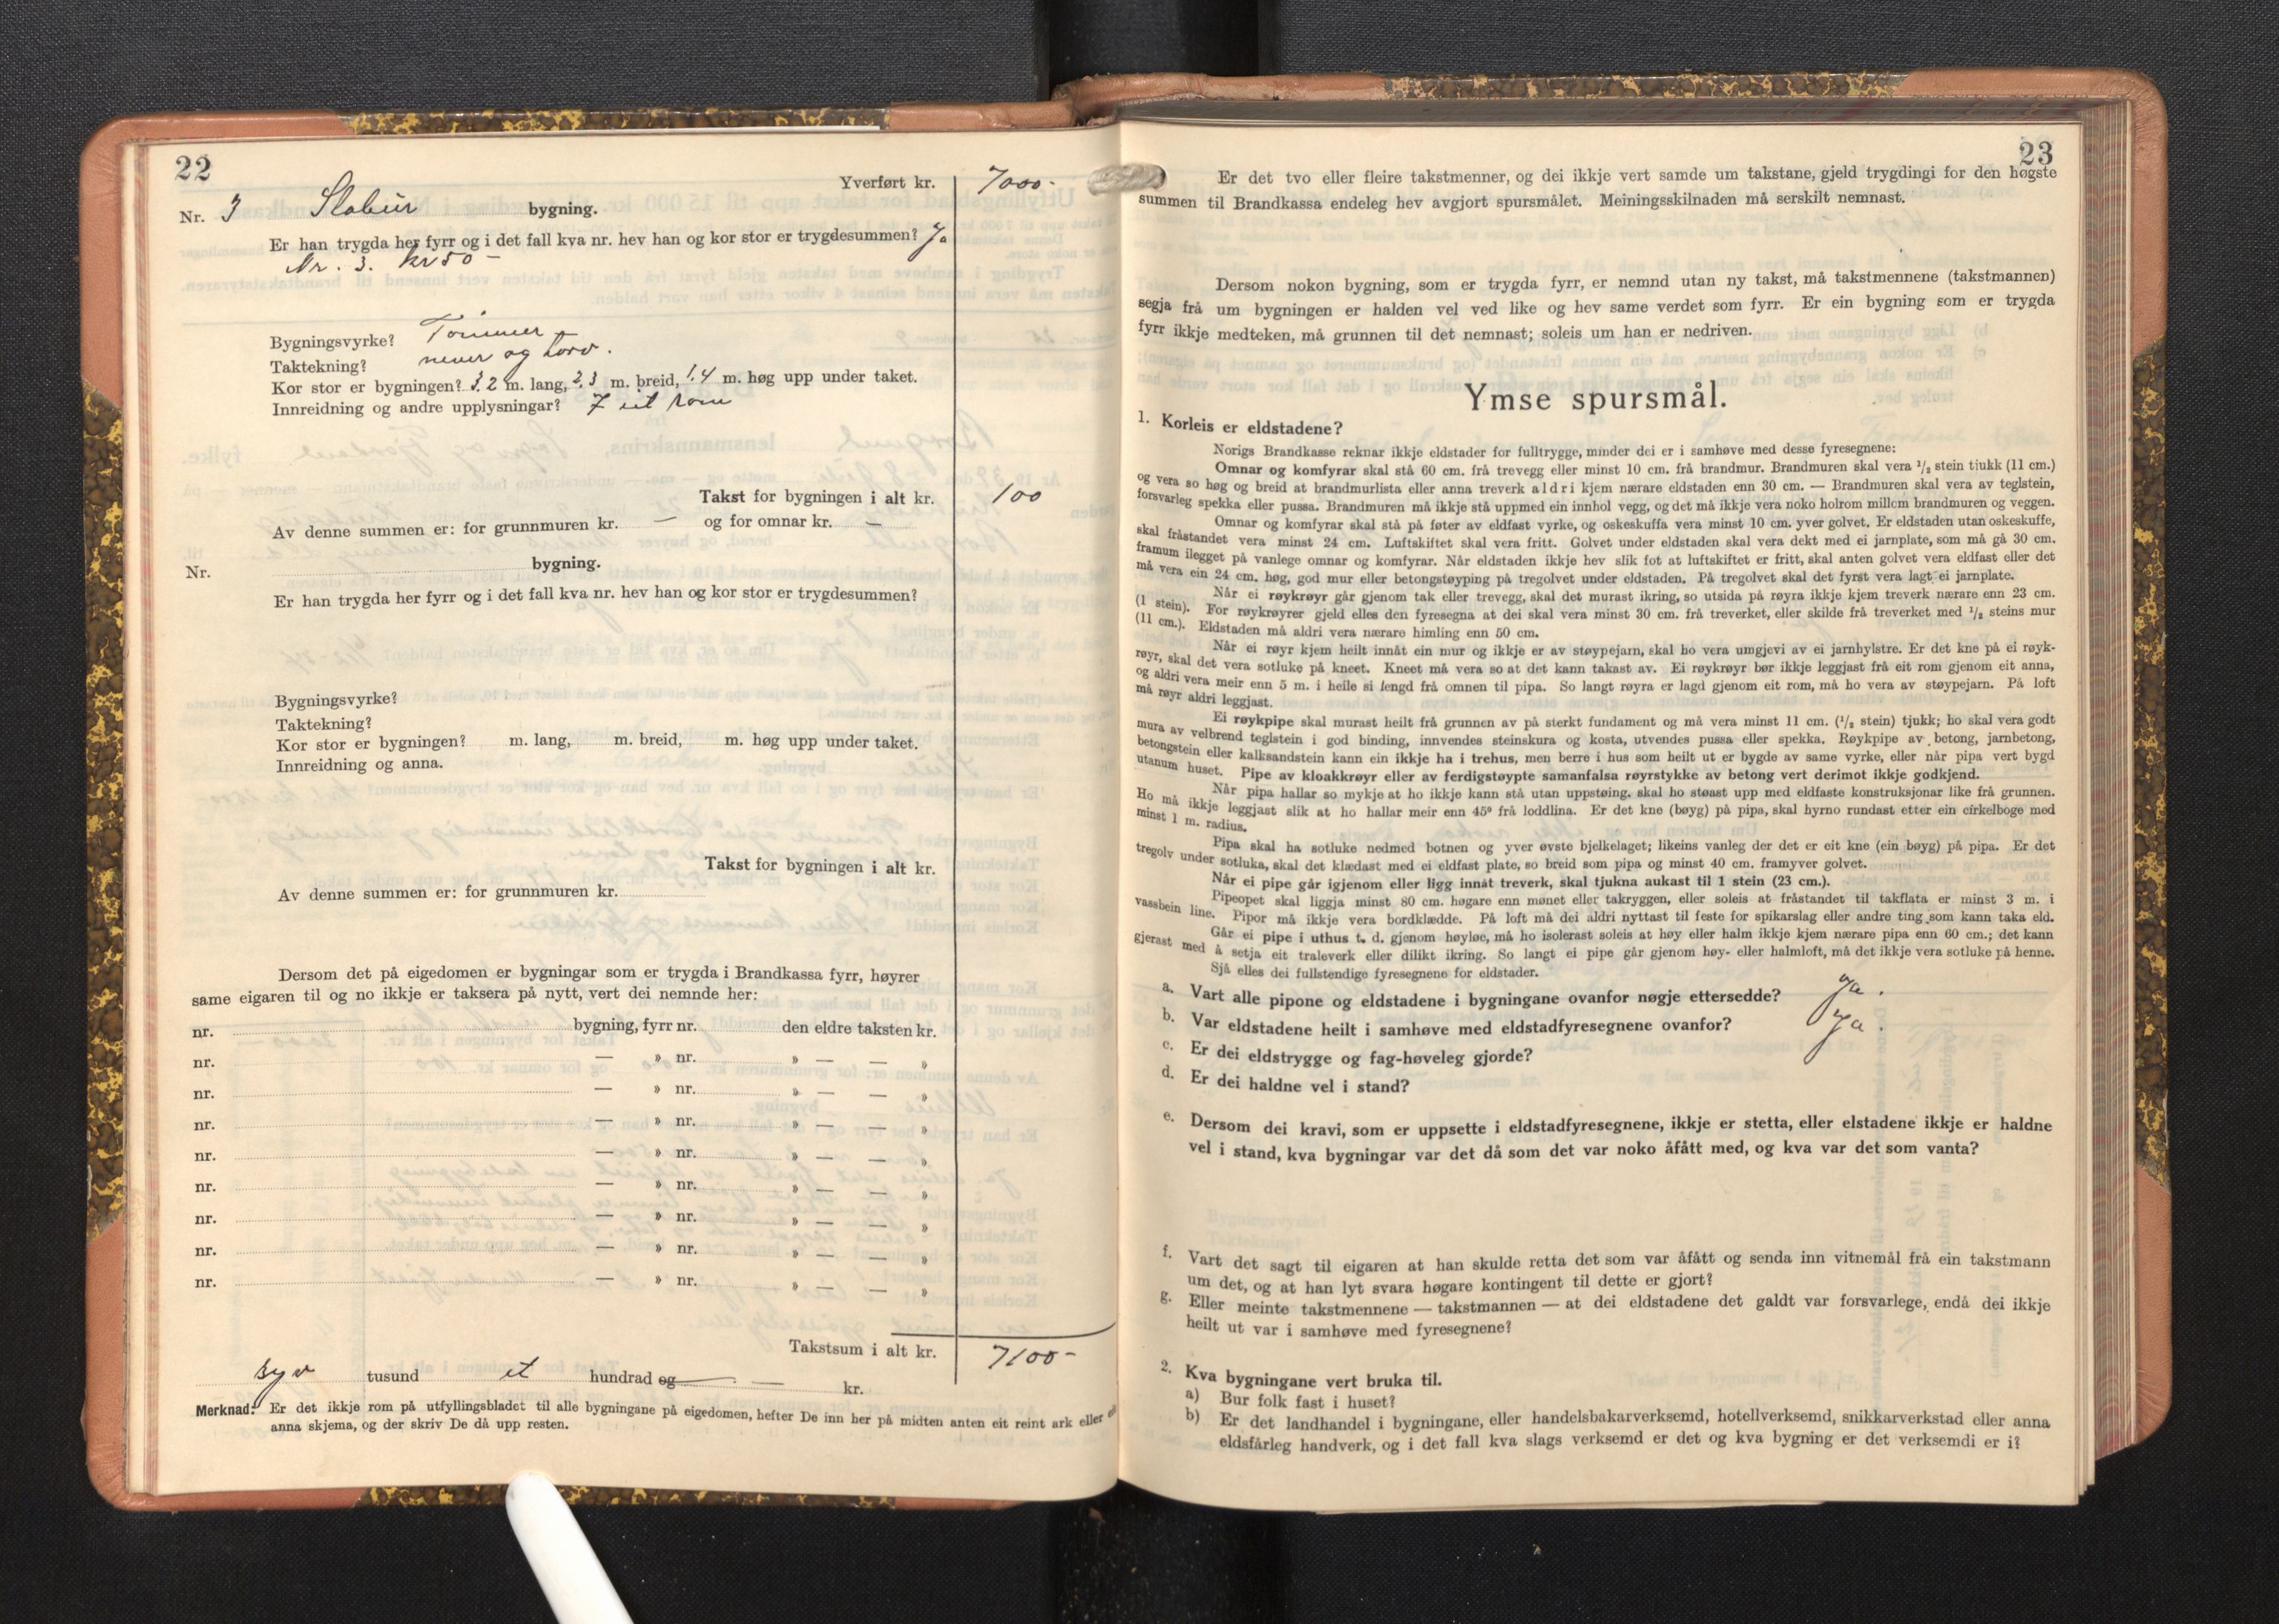 22
Yverført kr. 7000-
Nr. 3 Stabur bygning.
Er han trygda her fyrr og i det fall kva nr. hev han og kor stor er trygdesummen? Ja
Nr. 3. kr 50 -
Bygningsvyrke? Tømmer
Taktekning? never og torv.
Kor stor er bygningen? 3,2 m. lang, 2,3 m. breid, 1,4 m. høg upp under taket.
Innreidning og andre upplysningar? I eit rom
Takst for bygningen i alt kr. 100
Av denne summen er: for grunnmuren kr. — og for omnar kr. —
Nr. bygning.
Er han trygda her fyrr og i det fall kva nr. hev han og kor stor er trygdesummen?
Bygningsvyrke?
Taktekning?
Kor stor er bygningen? m. lang, m. breid, m. høg upp under taket.
Innreidning og anna.
Takst for bygningen i alt kr.
Av denne summen er: for grunnmuren kr.
Dersom det på eigedomen er bygningar som er trygda i Brandkassa fyrr, høyrer
same eigaren til og no ikkje er taksera på nytt, vert dei nemnde her:
nr. bygning, fyrr nr. den eldre taksten kr.
nr. — » nr. » — — »
nr. — » nr. » — — »
nr. — » nr. » — — »
nr. — » nr. » — — »
nr. — » nr. » — — »
nr. — » nr. » — — »
nr. — » nr. » — — »
nr. — » nr. » — — »
Takstsum i alt kr. 7100-
syv tusund et hundrad og — kr.
Merknad: Er det ikkje rom på utfyllingsbladet til alle bygningane på eigedomen, hefter De inn her på midten anten eit reint ark eller
anna skjema, og der skriv De då upp resten.
23
Er det tvo eller fleire takstmenner, og dei ikkje vert samde um takstane, gjeld trygdingi for den høgste
summen til Brandkassa endeleg hev avgjort spursmålet. Meiningsskilnaden må serskilt nemnast.
Dersom nokon bygning, som er trygda fyrr, er nemnd utan ny takst, må takstmennene (takstmannen)
segja frå um bygningen er halden vel ved like og hev same verdet som fyrr. Er ein bygning som er trygda
fyrr ikkje medteken, må grunnen til det nemnast; soleis um han er nedriven.
Ymse spursmål.
1. Korleis er eldstadene?
Norigs Brandkasse reknar ikkje eldstader for fulltrygge, minder dei er i samhøve med desse fyresegnene:
Omnar og komfyrar skal stå 60 cm. frå trevegg eller minst 10 cm. frå brandmur. Brandmuren skal vera ¹/₂ stein tjukk (11 cm.)
og vera so høg og breid at brandmurlista eller anna treverk aldri kjem nærare eldstaden enn 30 cm. — Brandmuren skal vera av teglstein,
forsvarleg spekka eller pussa. Brandmuren må ikkje stå uppmed ein innhol vegg, og det må ikkje vera noko holrom millem brandmuren og veggen.
Omnar og komfyrar skal stå på føter av eldfast vyrke, og oskeskuffa vera minst 10 cm. yver golvet. Er eldstaden utan oskeskuffe,
skal fråstandet vera minst 24 cm. Luftskiftet skal vera fritt. Golvet under eldstaden skal vera dekt med ei jarnplate, som må gå 30 cm.
framum ilegget på vanlege omnar og komfyrar. Når eldstaden ikkje hev slik fot at luftskiftet er fritt, skal anten golvet vera eldfast eller det
må vera ein 24 cm. høg, god mur eller betongstøyping på tregolvet under eldstaden. På tregolvet skal det fyrst vera lagt ei jarnplate.
Når ei røykrøyr går gjenom tak eller trevegg, skal det murast ikring, so utsida på røyra ikkje kjem treverk nærare enn 23 cm.
(1 stein). For røykrøyrer gjeld elles den fyresegna at dei skal vera minst 30 cm. frå treverket, eller skilde frå treverket med ¹/₂ steins mur
(11 cm.). Eldstaden må aldri vera nærare himling enn 50 cm.
Når ei røyr kjem heilt innåt ein mur og ikkje er av støypejarn, skal ho vera umgjevi av ei jarnhylstre. Er det kne på ei røyk-
røyr, skal det vera sotluke på kneet. Kneet må vera so at det kann takast av. Ei røykrøyr bør ikkje leggjast frå eit rom gjenom eit anna,
og aldri vera meir enn 5 m. i heile si lengd frå omnen til pipa. So langt røyra er lagd gjenom eit rom, må ho vera av støypejarn. På loft
må røyr aldri leggjast.
Ei røykpipe skal murast heilt frå grunnen av på sterkt fundament og må vera minst 11 cm. (¹/₂ stein) tjukk; ho skal vera godt
mura av velbrend teglstein i god binding, innvendes steinskura og kosta, utvendes pussa eller spekka. Røykpipe av betong, jarnbetong,
betongstein eller kalksandstein kann ein ikkje ha i trehus, men berre i hus som heilt ut er bygde av same vyrke, eller når pipa vert bygd
utanum huset. Pipe av kloakkrøyr eller av ferdigstøypte samanfalsa røyrstykke av betong vert derimot ikkje godkjend.
Når pipa hallar so mykje at ho ikkje kann stå utan uppstøing, skal ho støast upp med eldfaste konstruksjonar like frå grunnen.
Ho må ikkje leggjast slik at ho hallar meir enn 45° frå loddlina. Er det kne (bøyg) på pipa, skal hyrno rundast etter ein cirkelboge med
minst 1 m. radius.
Pipa skal ha sotluke nedmed botnen og yver øvste bjelkelaget; likeins vanleg der det er eit kne (ein bøyg) på pipa. Er det
tregolv under sotluka, skal det klædast med ei eldfast plate, so breid som pipa og minst 40 cm. framyver golvet.
Når ei pipe går igjenom eller ligg innåt treverk, skal tjukna aukast til 1 stein (23 cm.).
Pipeopet skal liggja minst 80 cm. høgare enn mønet eller takryggen, eller soleis at fråstandet til takflata er minst 3 m. i
vassbein line. Pipor må ikkje vera bordklædde. På loft må dei aldri nyttast til feste for spikarslag eller andre ting som kann taka eld.
Går ei pipe i uthus t. d. gjenom høyløe, må ho isolerast soleis at høy eller halm ikkje kjem nærare pipa enn 60 cm.; det kann
gjerast med å setja eit traleverk eller dilikt ikring. So langt ei pipe går gjenom høy- eller halmloft, må det ikkje vera sotluke på henne.
Sjå elles dei fullstendige fyresegnene for eldstader.
a. Vart alle pipone og eldstadene i bygningane ovanfor nøgje ettersedde? Ja.
b. Var eldstadene heilt i samhøve med eldstadfyresegnene ovanfor? Ja.
c. Er dei eldstrygge og fag-høveleg gjorde?
d. Er dei haldne vel i stand?
e. Dersom dei kravi, som er uppsette i eldstadfyresegnene, ikkje er stetta, eller elstadene ikkje er haldne
vel i stand, kva bygningar var det då som det var noko åfått med, og kva var det som vanta?
f. Vart det sagt til eigaren at han skulde retta det som var åfått og senda inn vitnemål frå ein takstmann
um det, og at han lyt svara høgare kontingent til dette er gjort?
g. Eller meinte takstmennene — takstmannen — at dei eldstadene det galdt var forsvarlege, endå dei ikkje
heilt ut var i samhøve med fyresegnene?
2. Kva bygningane vert bruka til.
a) Bur folk fast i huset?
b) Er det landhandel i bygningane, eller handelsbakarverksemd, hotellverksemd, snikkarverkstad eller anna
eldsfårleg handverk, og i det fall kva slags verksemd er det og kva bygning er det verksemdi er i?